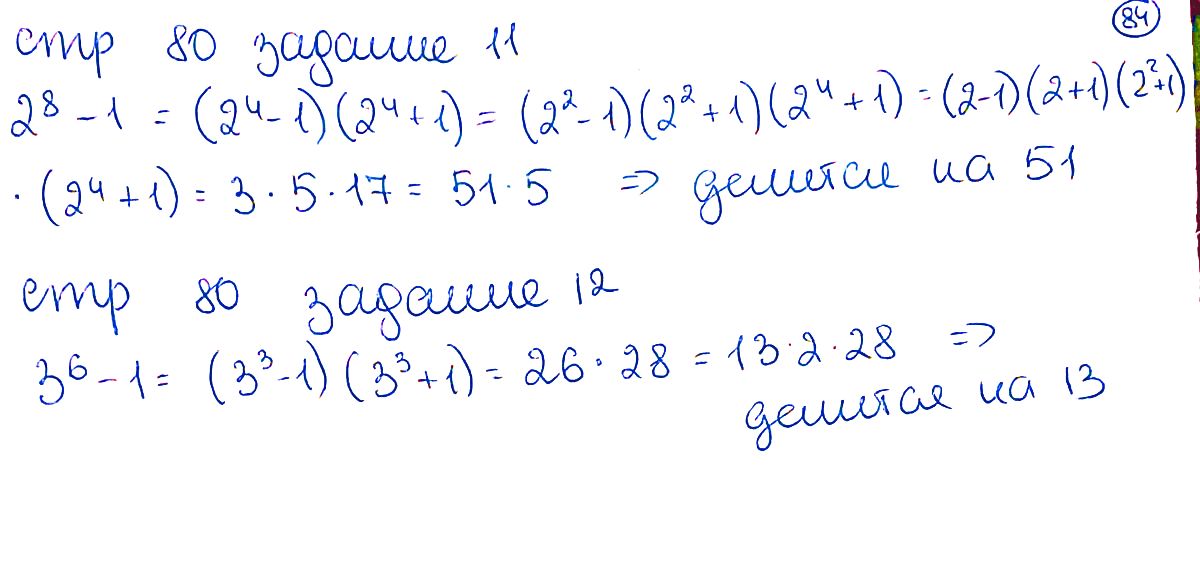 84
стр 80 задание 11
2⁸ - 1 = (2⁴ - 1)(2⁴ + 1) = (2² - 1)(2² + 1)(2⁴ + 1) = (2-1)(2+1)(2²+1)
· (2⁴ + 1) = 3 · 5 · 17 = 51 · 5 ⇒ делится на 51
стр 80 задание 12
3⁶ - 1 = (3³ - 1)(3³ + 1) = 26 · 28 = 13 · 2 · 28 ⇒
делится на 13